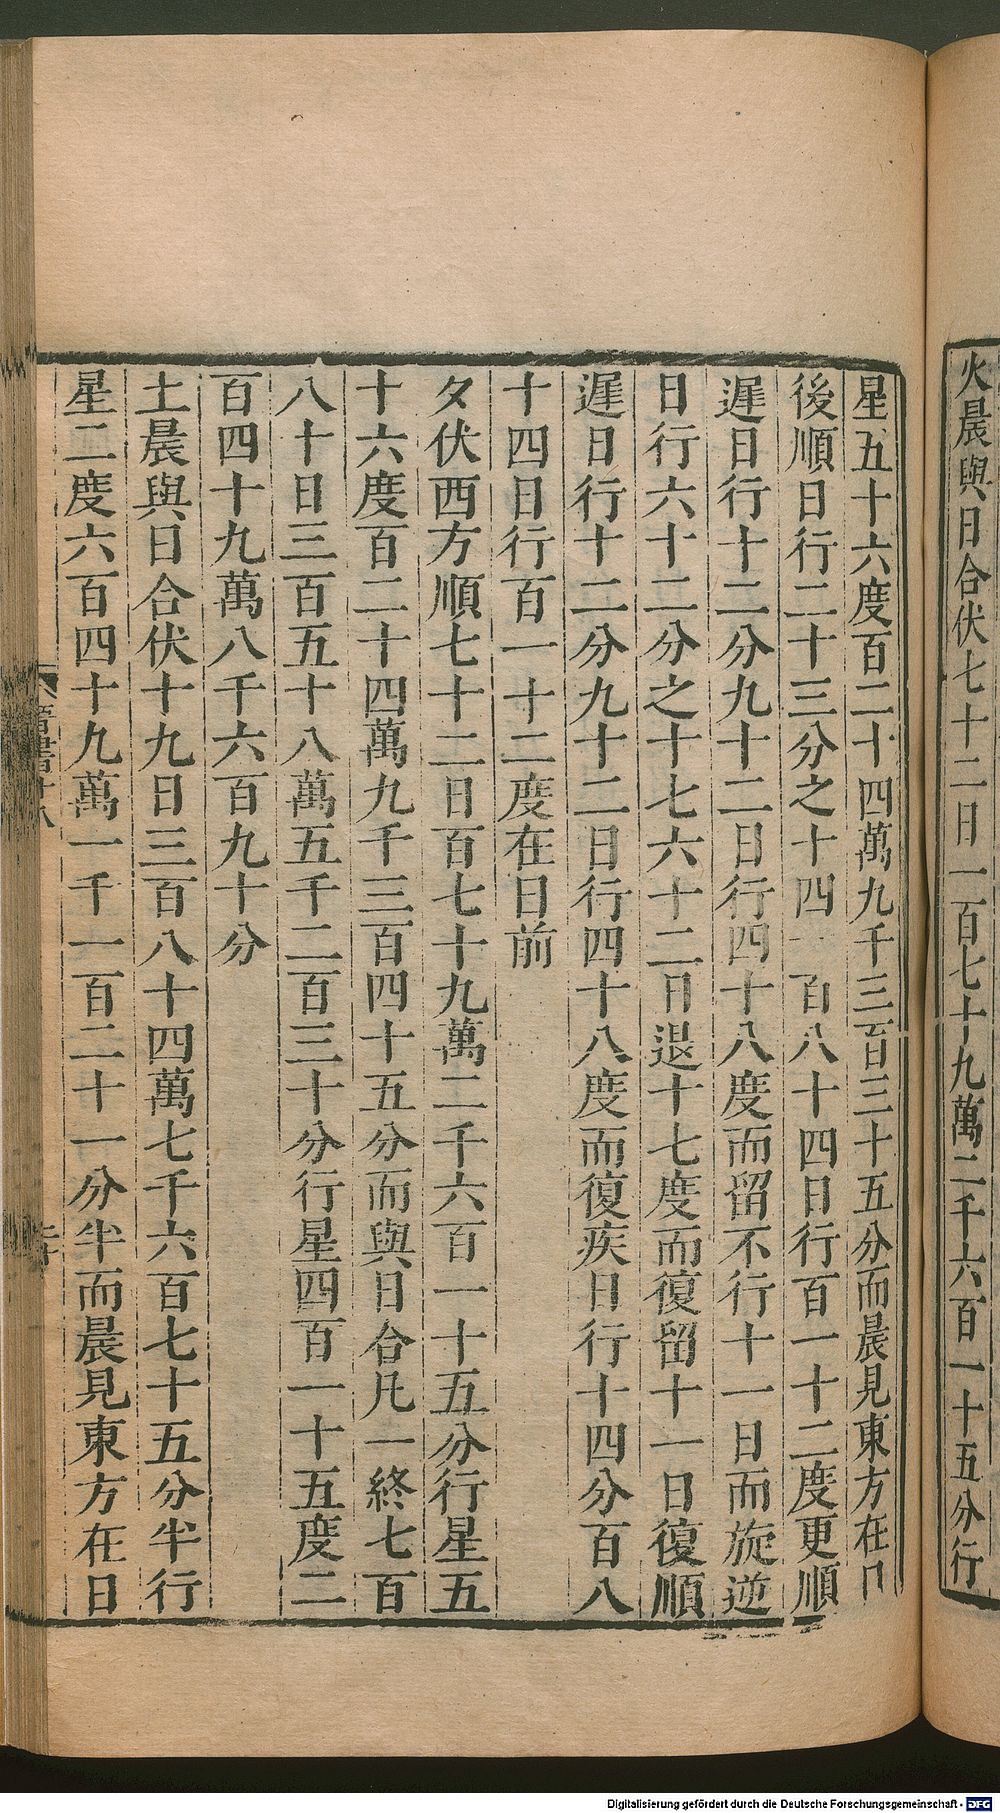 火晨與日合伏七十二日一百七十九萬二千六百一十五分行
星五十六度百二十四萬九千三百三十五分而晨見東方在日
後順日行二十三分之十四一百八十四日行百一十二度更順
遲日行十二分九十二日行四十八度而留不行十一日而旋逆
日行六十二分之十七六十二日退十七度而復留十一日復順
遲日行十二分九十二日行四十八度而復疾日行十四分百八
十四日行百一十二度在日前
夕伏西方順七十二日百七十九萬二千六百一十五分行星五
十六度百二十四萬九千三百四十五分而與日合凡一終七百
八十日三百五十八萬五千二百三十分行星四百一十五度二
百四十九萬八千六百九十分
土晨與日合伏十九日三百八十四萬七千六百七十五分半行
星二度六百四十九萬一千一百二十一分半而晨見東方在日
晉書十八
Digitalisierung gefördert durch die Deutsche Forschungsgemeinschaft - DFG